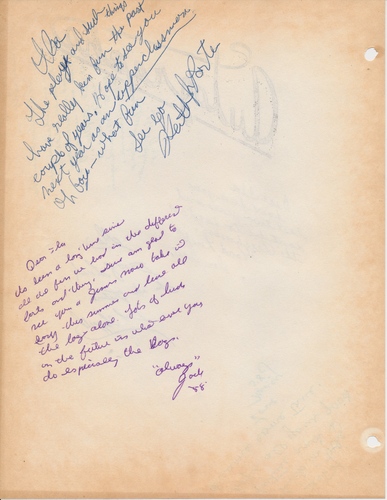 Ila
The plays and such things
have really been fun the past
couple of years. Hope to see you
next year as an upperclassman.
Oh boy - what fun
See ya
Dear Ila
Its been a long time since
all the fun we had in the different
and thing. Sure am glad to
see you a Junior now take it
easy this summer and leave all
the boys alone. Lots of luck
in the future in what ever you
do especially the Boys.
"always"
Jack
'58'